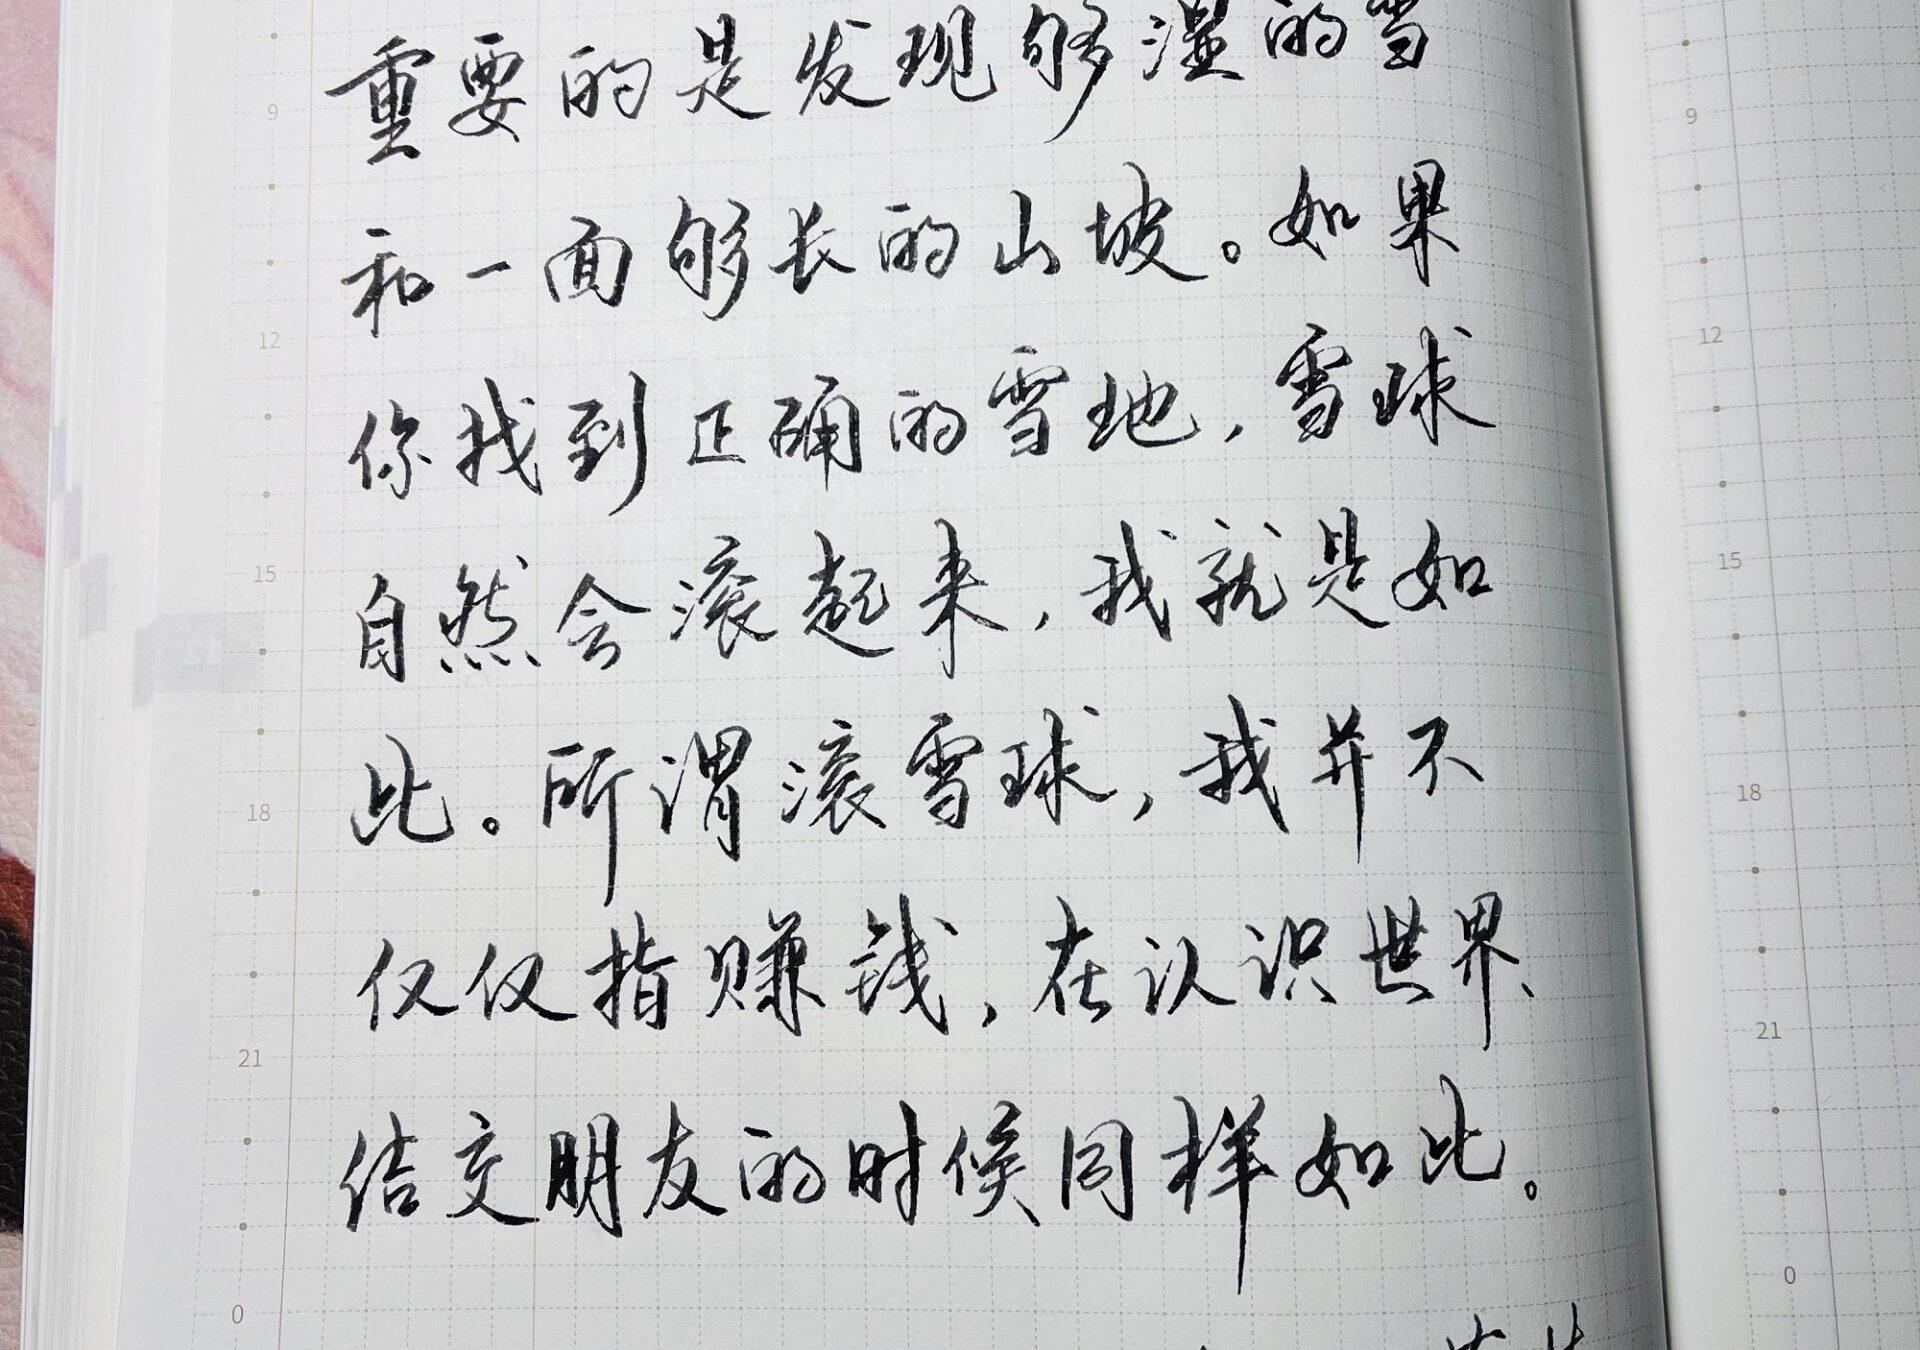 重要的是发现够湿的雪
和一面够长的山坡。如果
你找到正确的雪地，雪球
自然会滚起来，我就是如
此。所谓滚雪球，我并不
仅仅指赚钱，在认识世界、
结交朋友的时候同样如此。
9
12
15
18
21
0
9
12
15
18
21
0